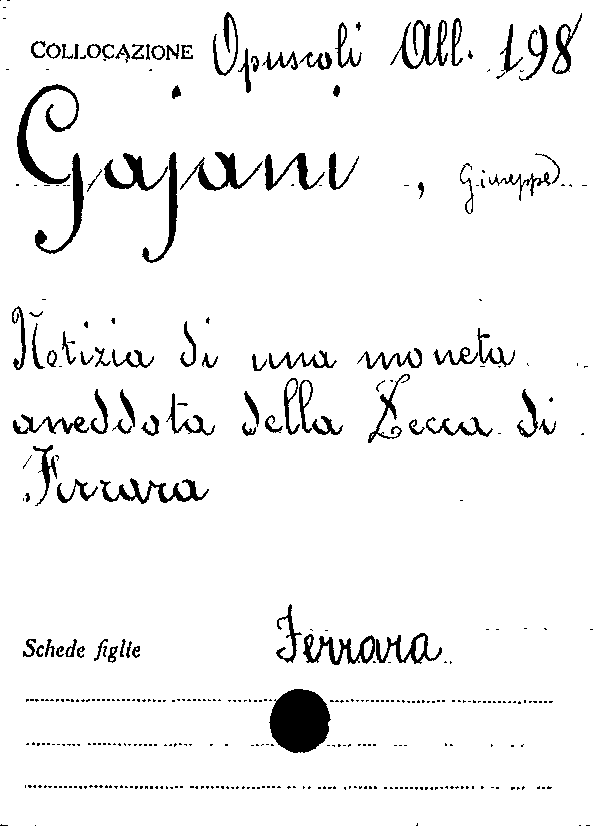 COLLOCAZIONE Opuscoli All. 198
Gajani, Giuseppe
Notizia di una moneta
aneddota della Zecca di
Ferrara
Schede figlie Ferrara